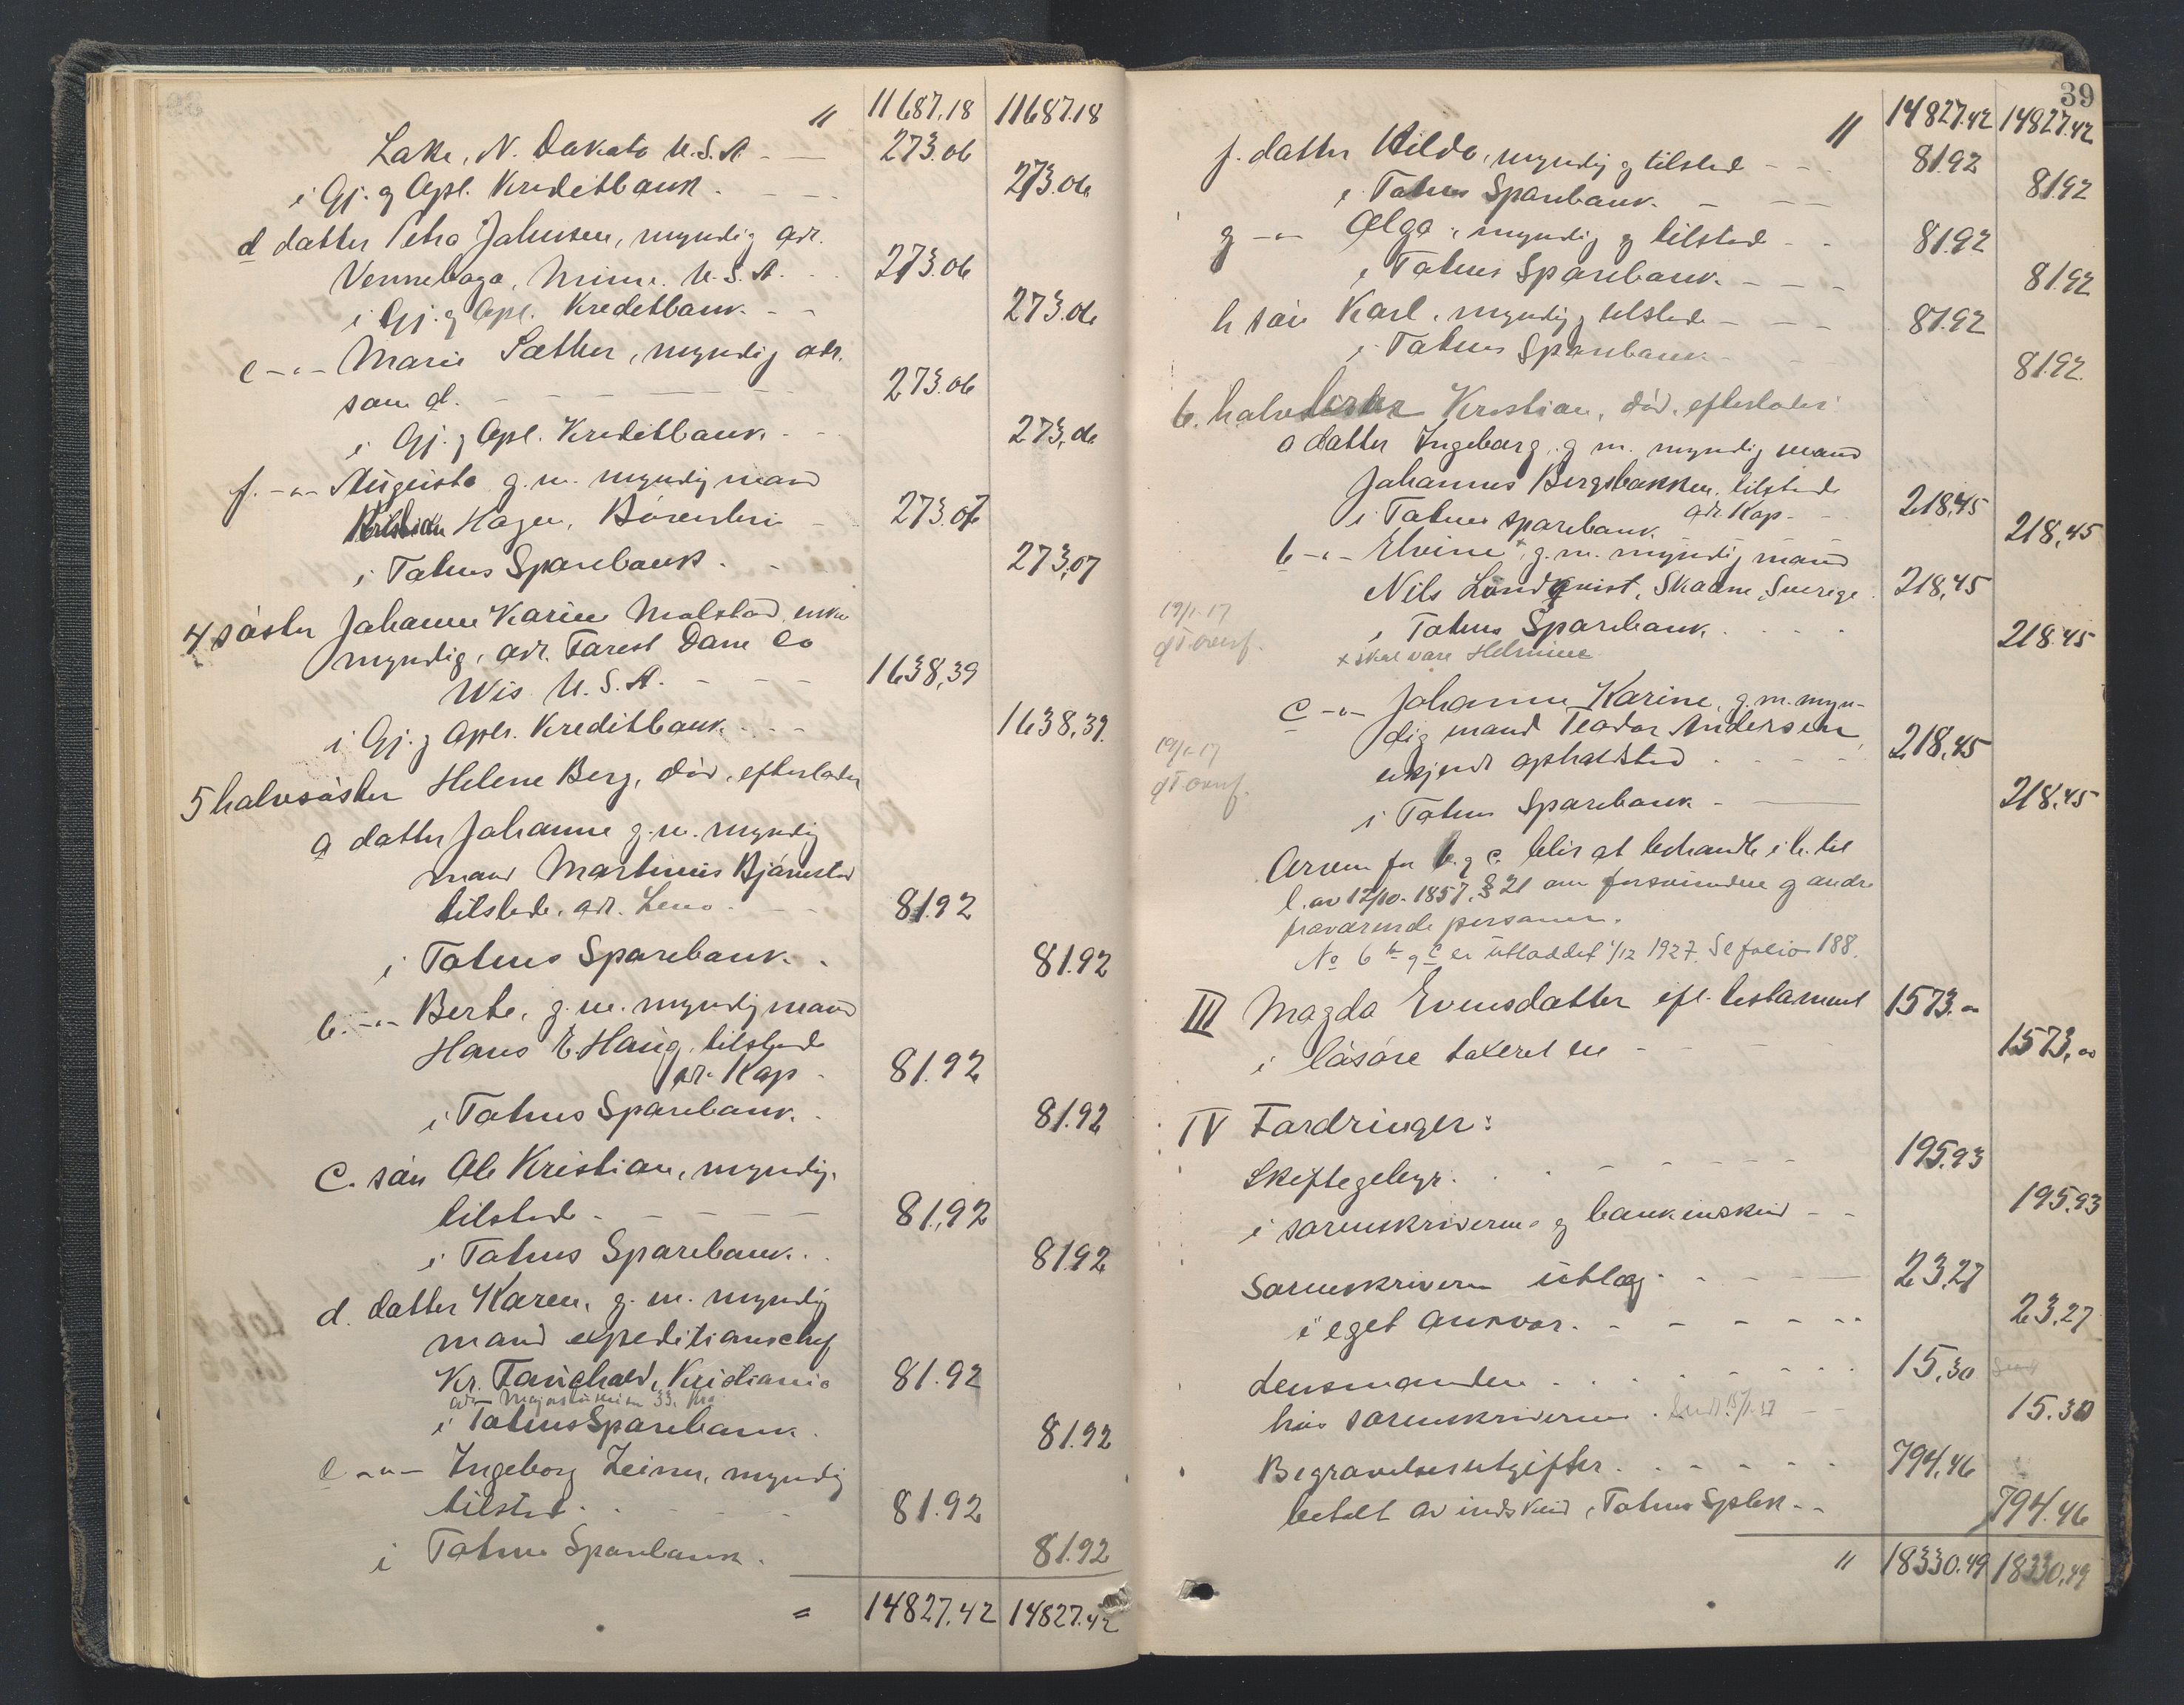 " 11687.18 11687.18
Lake, N. Dakota U.S.A. - — 273.06
i Gj. og Opl. Kreditbank. - — 273.06
d datter Petra Johnsen, myndig adr.
Vennebaga, Minn. U.S.A. . . 273.06
i Gj. og Opl. Kreditbank. - - 273.06
e -„- Marie Sæther, myndig adr.
som d. - — — — 273.06
i Gj. og Opl. Kreditbank. - - 273,06
f. -„- Augusta g.m. myndig mand
Kristian Hagen, - 273.07
i Totens Sparebank. - 273,07
4 søster Johanne Karine Molstad, enke
myndig, adr. Forest Dane Co
Wis. U.S.A. - — — 1638,39
i Gj. og Opl. Kreditbank. - - - 1638,39.
5 halvsøster Helene Berg, død, efterlader
a datter Johanne g.m. myndig
mand Martinius Bjørnstad
tilstede, adr. Lena - — - 81.92
i Totens Sparebank. - 81.92
b. -„- Berte, g.m. myndig mand
Hans E. Haug, tilstede
adr. Kap - 81.92
i Totens Sparebank. - 81.92
c. søn Ole Kristian, myndig,
tilstede - — — — 81,92
i Totens Sparebank. . 81.92
d. datter Karen, g.m. myndig
mand expeditionschef
Kr. Fauchald, Kristiania 81.92
adr. Majorstuveien 33, Kra
i Totens Sparebank. 81.92
e -„- Ingeborg Leine, myndig
tilsted. . - - 81.92
i Totens Sparebank. 81.92
= 14827,42 14827.42
39
" 14827.42 14827.42
f. datter Hilda, myndig og tilsted - - 81.92
i Totens Sparebank. - — — 81.92
g -„- Olga, myndig og tilstede - - 81.92
i Totens Sparebank. - - - 81.92
h søn Karl, myndig og tilstede - - - 81.92
i Totens Sparebank - - 81.92.
6. halvbror Kristian, død, efterlater:
a datter Ingeborg, g.m. myndig mand
Johannes Bergsbakken, tilstede
adr. Kap. - 218,45
i Totens sparebank. 218,45
b -„- Elvine x, g.m. myndig mand
Nils Lundqvist, Skaane, Sverige 218,45
19/1-17
i Totens Sparebank. . . . 218.45
x skal være Helmine
c -„- Johanne Karine, g.m. myn-
dig mand Teodor Andersen,
19/1-17
ukjendt opholdsted . - - - 218,45
i Totens Sparebank - — 218,45
Arven for b. og c. blir at behandle i h. til
l. av 12/10-1857, § 21 om forsvundne og andre
fraværende personer.
No 6 b og c er utloddet 1/12 1927. Se folio 188.
III Magda Evensdatter efl. testament 1573.00
i løsøre taxeret til - - - - 1573,00
IV Fordringer:
Skiftegebyr. . . - - - - - 195.93
i sorenskriveren og bankinskud - - 195.93
Sorenskriveren utlæg. - - - — 23,27
i eget ansvar. - - - - - 23,27
Lensmanden . . . . - - - . 15,30
hos sorenskriveren . Sendt 15/1-17 — 15.30
Begravelsesutgifter. . - - - - 794,46
betalt av indskud i Totens Spbk - - 794.46
" 18330.49 18330.49